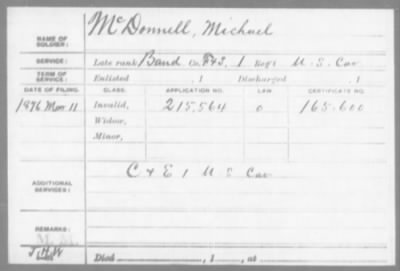 NAME OF SOLDIER: McDonnell, Michael
SERVICE: Late rank Band Co. F&S, 1 Reg't U. S. Cav
TERM OF SERVICE: Enlisted , 1 Discharged , 1
DATE OF FILING. CLASS. APPLICATION NO. LAW CERTIFICATE NO.
1876 Mar 11 Invalid, 215.564 165.600
Widow,
Minor,
C & E 1 U S Cav
ADDITIONAL SERVICES:
REMARKS:
Died , 1 , at